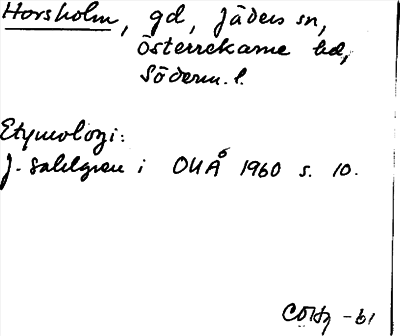 Horsholm, gd, Jäders sn,
Österrekarne hd,
Söderm. l.
Etymologi:
J. Sahlgren i OUÅ 1960 s. 10.
-61